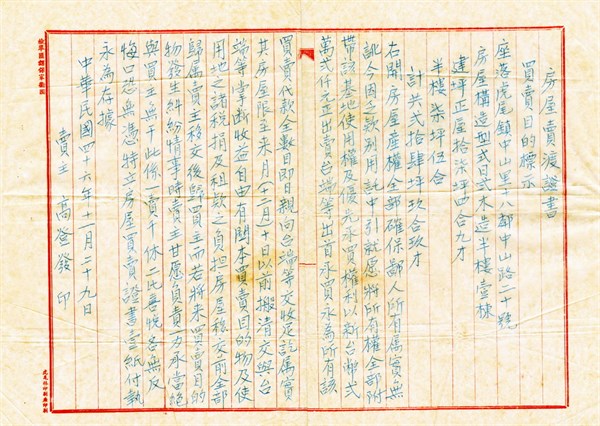 房屋賣渡證書
買賣目的標示
座落虎尾鎮中山里十八鄰中山路二十號
房屋構造型式日式木造半樓壹棟
建坪正屋拾柒坪四合九才
半樓柒坪伍合
計共弍拾肆坪玖合玖才
右開房屋產權全部確保鄙人所有屬實無
訛今因乏款別用託中引就愿將所有權全部附
帶該基地使用權及優先承買權利以新台幣弍
萬弍仟元立出賣台端等出首承買永為所有該
買賣代款全數目即日親向台端等交收足訖屬實
其房屋限至來月(十二月)十日以前搬清交與台
端等掌斷收益自由有關本買賣目的物及使
用地之諸稅捐及租款之負担房屋移交前全部
歸屬賣主移交後歸買主而若將來買賣目的
物發生糾紛情事時賣主甘愿負責一力承當絕
與買主無干此係一賣千休二比喜悅各無反
悔口恐無憑特立房屋買賣證書壹紙付執
永為存據
中華民國四十六年十一月二十九日
賣主 高登發 印